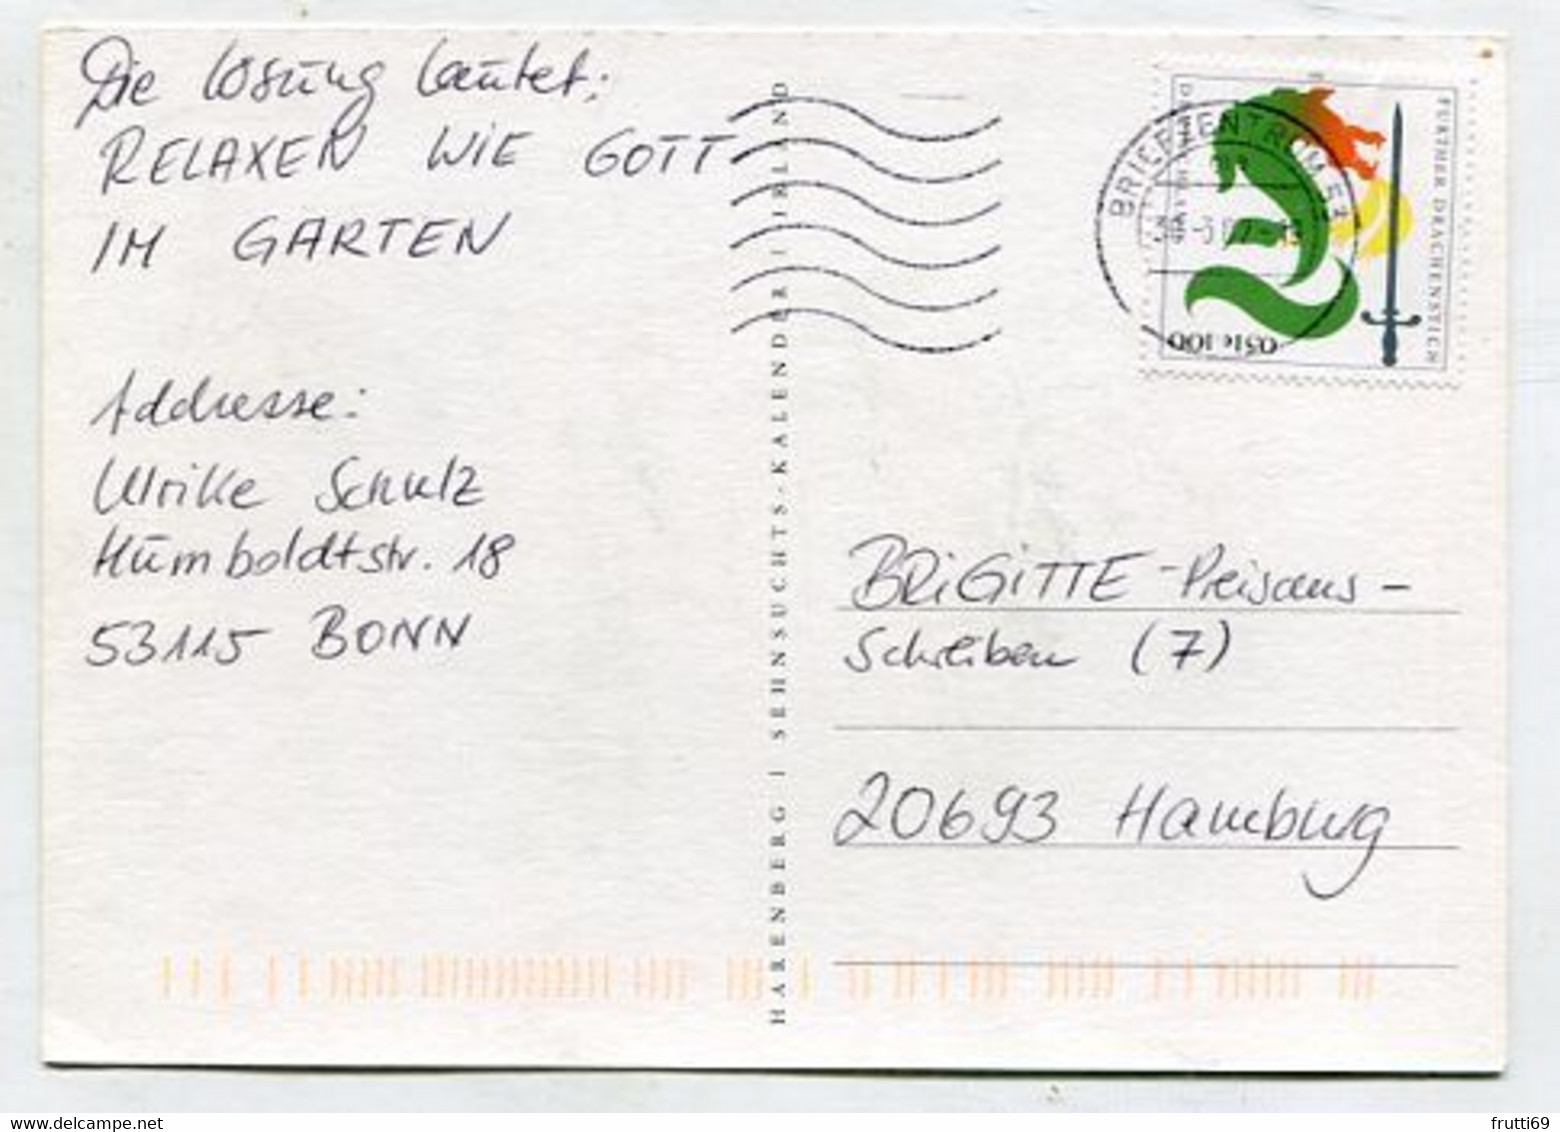 Die Lösung lautet:
RELAXEN WIE GOTT
IM GARTEN
Addresse:
Ulrike Schulz
Humboldtstr. 18
53115 BONN
HARENBERG | SEHNSUCHTS-KALENDER IRLAND
BRIEFZENTRUM 53
FURTHER DRACHENSTICH
0,51€ 100
BRIGITTE-Preisaus-
schreiben (7)
20693 Hamburg
frutti69